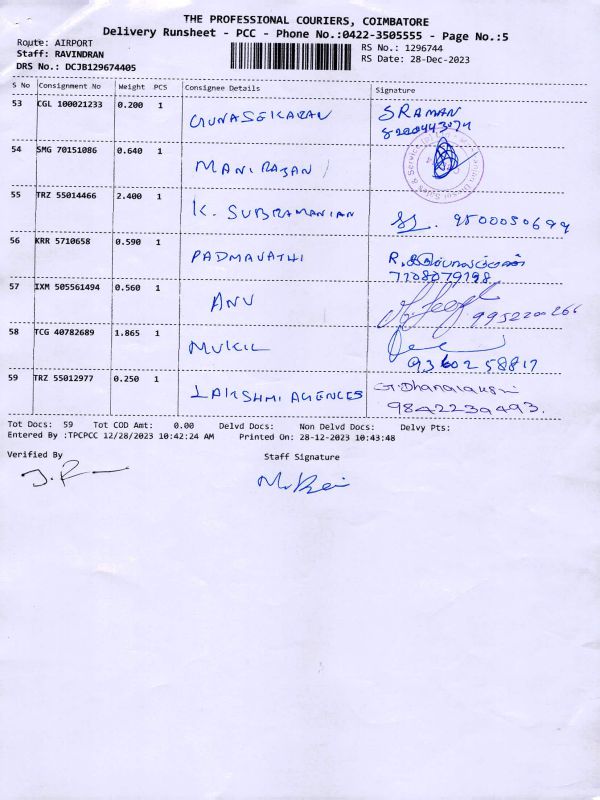 THE PROFESSIONAL COURIERS, COIMBATORE
Delivery Runsheet - PCC - Phone No.:0422-3505555 - Page No.:5
Route: AIRPORT
Staff: RAVINDRAN
DRS No.: DCJB129674405
RS No.: 1296744
RS Date: 28-Dec-2023
S No Consignment No Weight PCS Consignee Details Signature
53 CGL 100021233 0.200 1 GUNASEKARAN SRAMAN
8220443074
54 SMG 70151086 0.640 1 MANIRAJAN
55 TRZ 55014466 2.400 1 K. SUBRAMANIAN 9500050699
56 KRR 5710658 0.590 1 PADMAVATHI R.
7708079798
57 IXM 505561494 0.560 1 ANU 9952200266
58 TCG 40782689 1.865 1 MUKIL
9360258817
59 TRZ 55012977 0.250 1 LAKSHMI AGENCES G. Dhanalakshmi
9842239493.
Tot Docs: 59 Tot COD Amt: 0.00 Delvd Docs: Non Delvd Docs: Delvy Pts:
Entered By :TPCPCC 12/28/2023 10:42:24 AM Printed On: 28-12-2023 10:43:48
Verified By Staff Signature